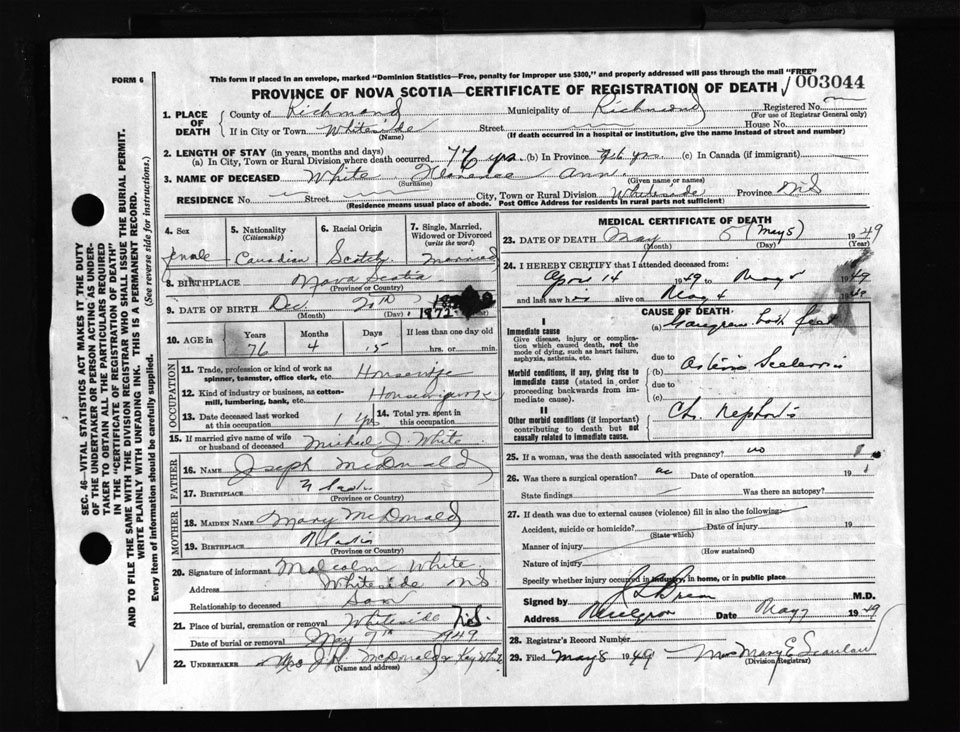 This form if placed in an envelope, marked "Dominion Statistics—Free, penalty for improper use $300," and properly addressed will pass through the mail "FREE"
FORM 6
PROVINCE OF NOVA SCOTIA—CERTIFICATE OF REGISTRATION OF DEATH 003044
1. PLACE OF DEATH County of Richmond Municipality of Richmond Registered No.
(For use of Registrar General only)
If in City or Town Whiteside Street House No.
(Name) (If death occurred in a hospital or institution, give the name instead of street and number)
2. LENGTH OF STAY (in years, months and days)
(a) In City, Town or Rural Division where death occurred, 76 yrs. (b) In Province 76 yrs. (c) In Canada (if immigrant)
3. NAME OF DECEASED White Florence Ann
(Surname) (Given name or names)
RESIDENCE No. Street City, Town or Rural Division Whiteside Province N.S
(Residence means usual place of abode. Post Office Address for residents in rural parts not sufficient)
4. Sex 5. Nationality (Citizenship) 6. Racial Origin 7. Single, Married, Widowed or Divorced (write the word)
Canadian Scotch Married
8. BIRTHPLACE Nova Scotia
(Province or Country)
9. DATE OF BIRTH Dec. 20th 1872
(Month) (Day)
10. AGE in Years Months Days If less than one day old
76 4 15 hrs. or min.
OCCUPATION
11. Trade, profession or kind of work as spinner, teamster, office clerk, etc. Housewife
12. Kind of industry or business, as cotton-mill, lumbering, bank, etc. Housework
13. Date deceased last worked at this occupation 1 14. Total yrs. spent in this occupation
15. If married give name of wife or husband of deceased Michael J. White
FATHER
16. NAME Joseph McDonald
17. BIRTHPLACE
(Province or Country)
MOTHER
18. MAIDEN NAME Mary McDonald
19. BIRTHPLACE
(Province or Country)
20. Signature of informant Malcolm White
Address Whiteside NS
Relationship to deceased Son
21. Place of burial, cremation or removal Whiteside N.S.
Date of burial or removal May 7th 1949
22. UNDERTAKER McDonald
(Name and address)
MEDICAL CERTIFICATE OF DEATH
23. DATE OF DEATH May 5 (May 5) 1949
(Month) (Day) (Year)
24. I HEREBY CERTIFY that I attended deceased from:
14 1949 to May 1949
and last saw h alive on May 4 19
CAUSE OF DEATH
I
Immediate cause
Give disease, injury or complication which caused death, not the mode of dying, such as heart failure, asphyxia, asthenia, etc.
(a) Gangrene both feet
due to
Morbid conditions, if any, giving rise to immediate cause (stated in order proceeding backwards from immediate cause).
(b)
due to
(c)
II
Other morbid conditions (if important) contributing to death but not causally related to immediate cause.
Ch. Nephritis
25. If a woman, was the death associated with pregnancy? no
26. Was there a surgical operation? Date of operation 19
State findings Was there an autopsy?
27. If death was due to external causes (violence) fill in also the following:
Accident, suicide or homicide? Date of injury 19
(State which)
Manner of injury
(How sustained)
Nature of injury
Specify whether injury occurred in industry, in home, or in public place
Signed by M.D.
Address Date May 7 1949
28. Registrar's Record Number
29. Filed May 8 1949 Mrs Mary E Scanlan
(Division Registrar)
SEC. 46—VITAL STATISTICS ACT MAKES IT THE DUTY
OF THE UNDERTAKER OR PERSON ACTING AS UNDER-
TAKER TO OBTAIN ALL THE PARTICULARS REQUIRED
IN THE "CERTIFICATE OF REGISTRATION OF DEATH"
AND TO FILE THE SAME WITH THE DIVISION REGISTRAR WHO SHALL ISSUE THE BURIAL PERMIT.
WRITE PLAINLY WITH UNFADING INK. THIS IS A PERMANENT RECORD.
Every item of information should be carefully supplied. (See reverse side for instructions.)